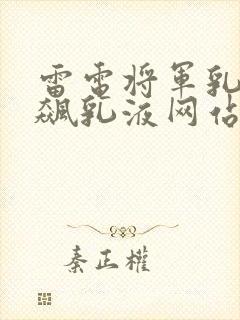 雷电将军乳
飙乳液网站
秦正權